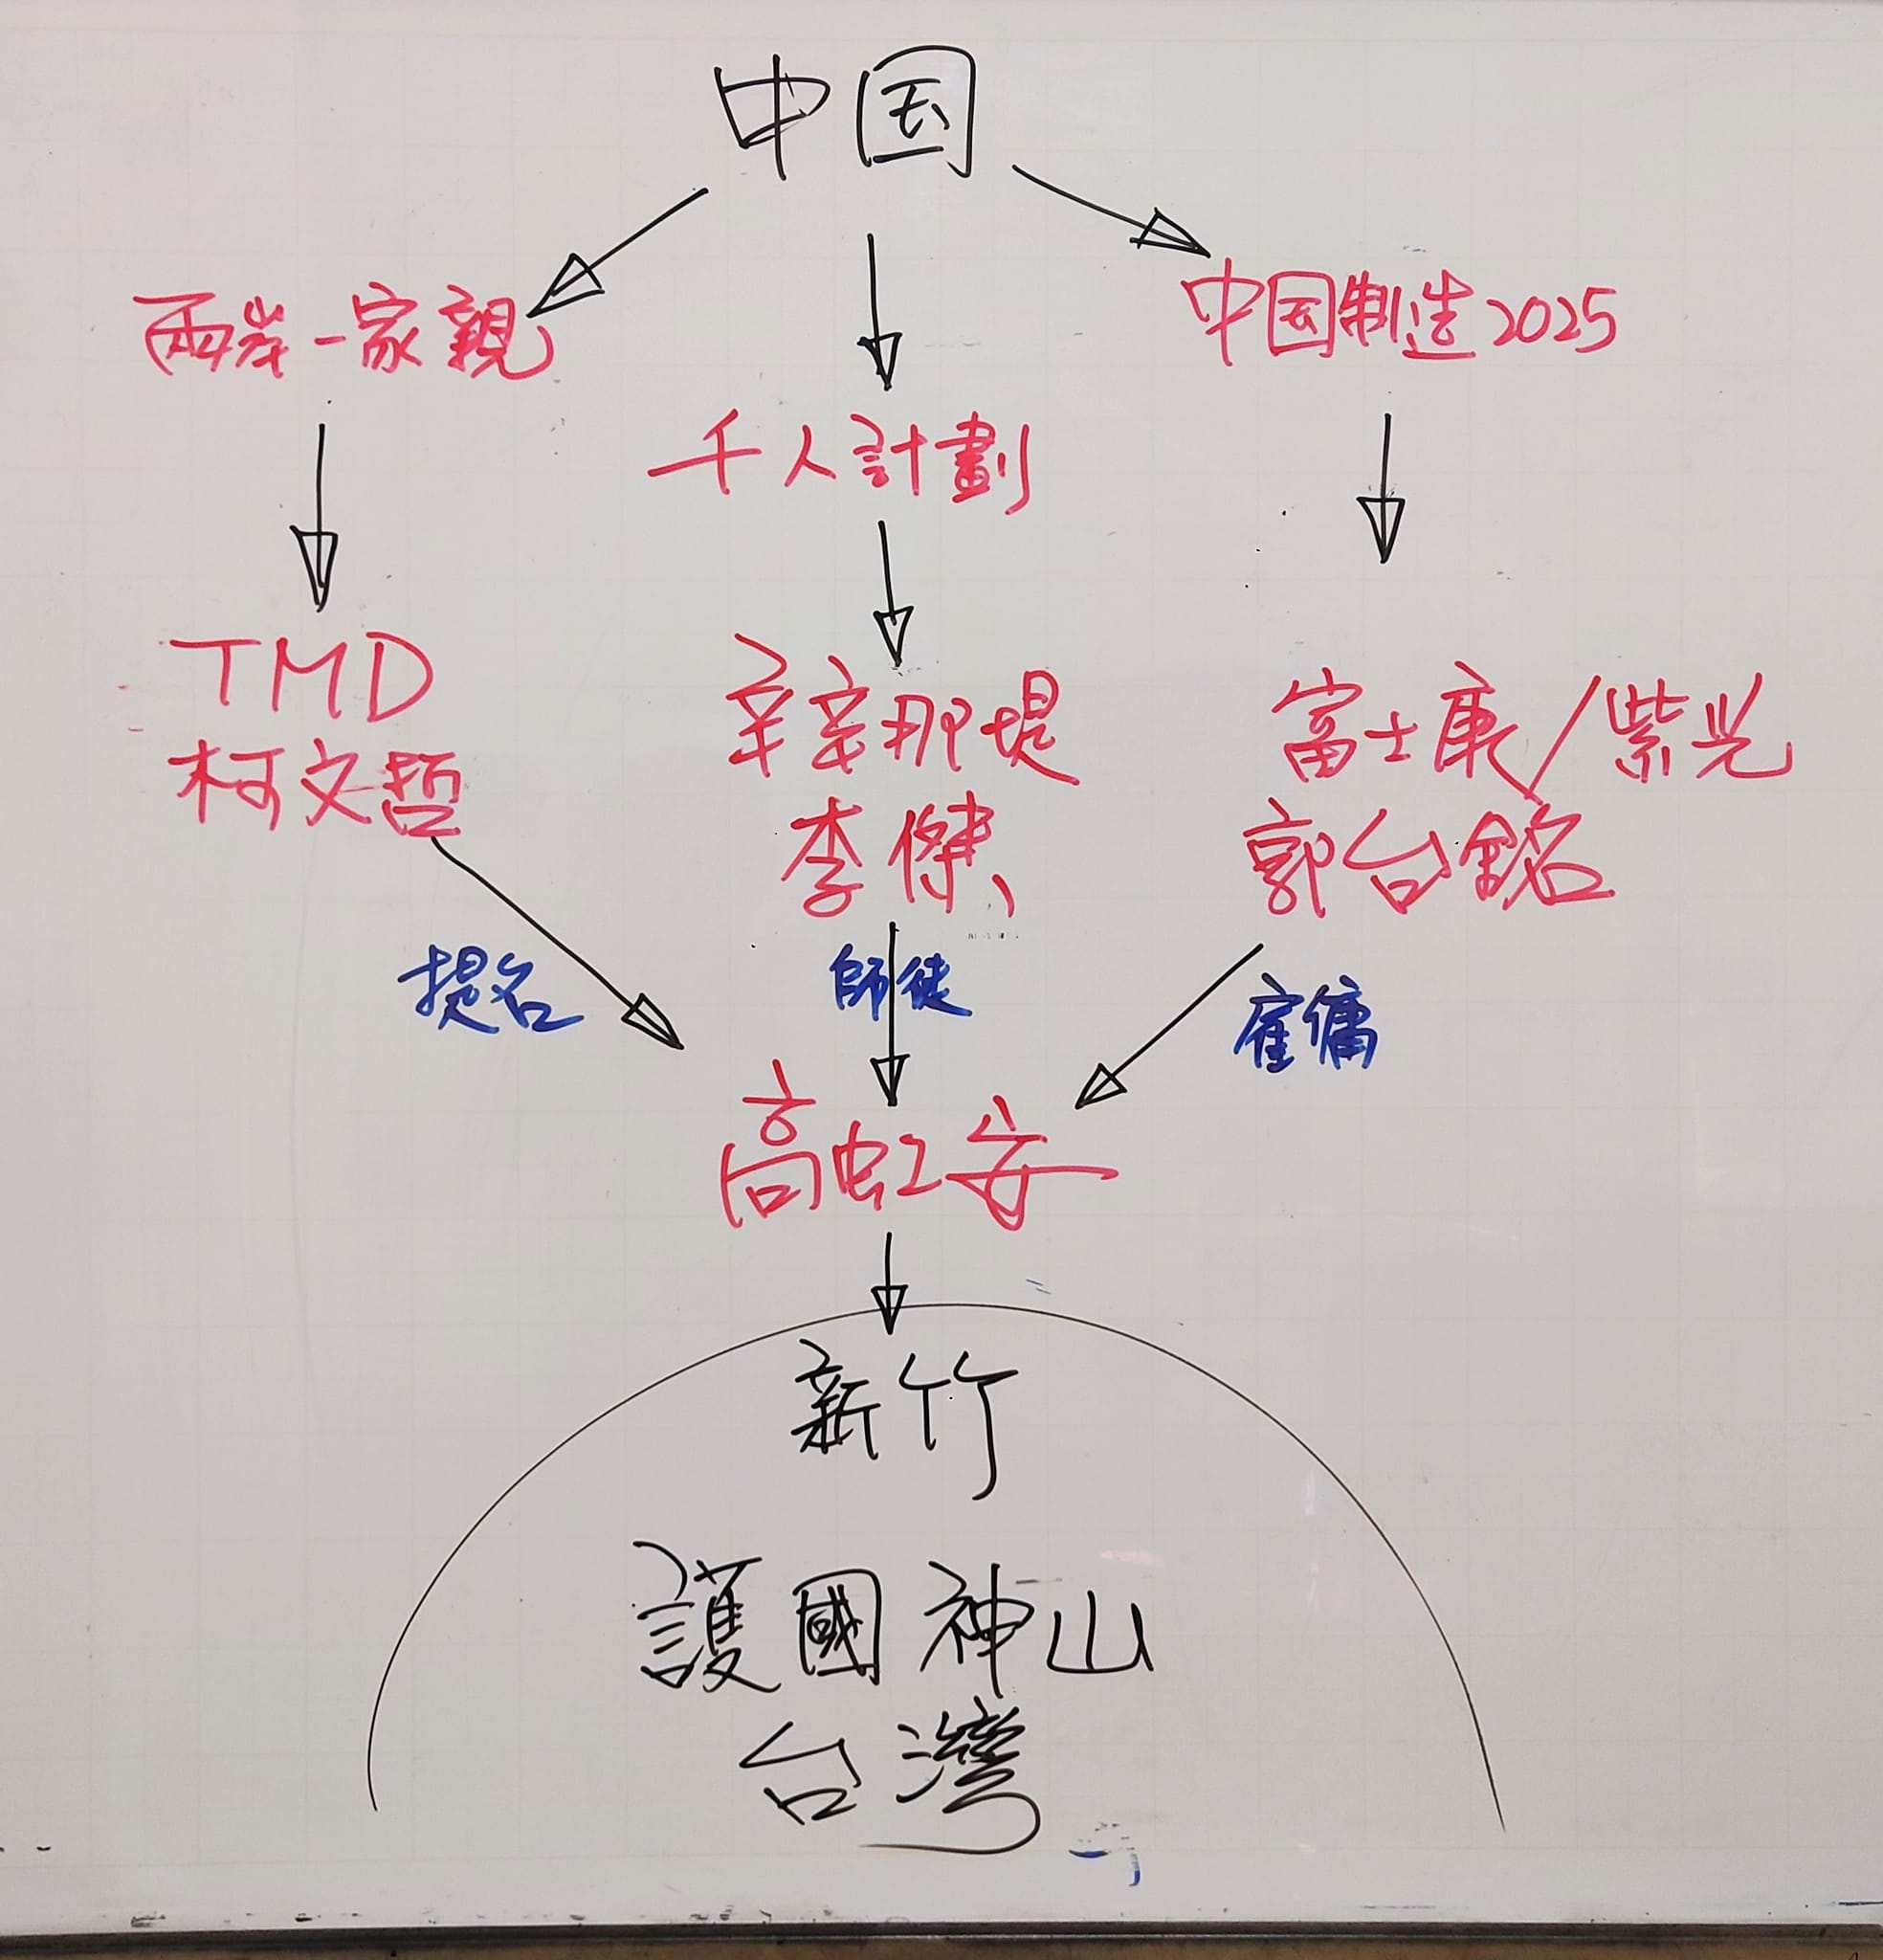 中国
兩岸一家親
中国制造2025
千人計劃
TMD
柯文哲
辛辛那堤
李傑
富士康/紫光
郭台銘
提名
師徒
雇傭
高虹安
新竹
護國神山
台灣